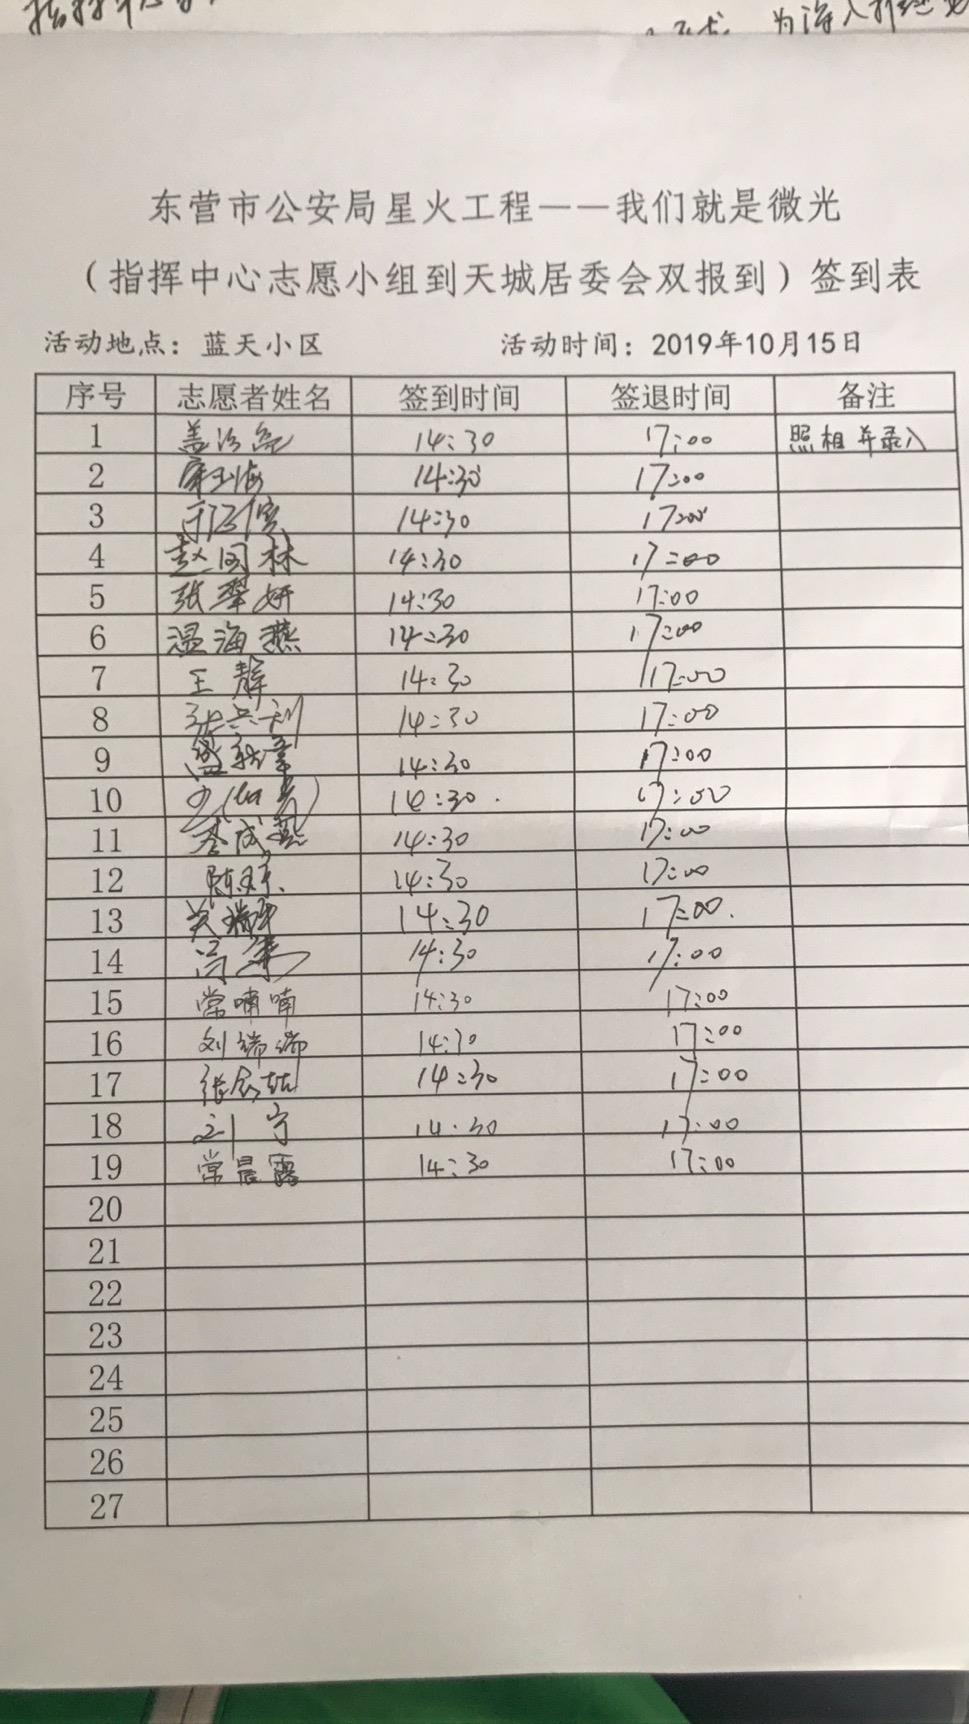 为深入推进
东营市公安局星火工程——我们就是微光
（指挥中心志愿小组到天城居委会双报到）签到表
活动地点：蓝天小区 活动时间：2019年10月15日
序号 志愿者姓名 签到时间 签退时间 备注
1 14:30 17:00 照相并录入
2 14:30 17:00
3 14:30 17:00
4 赵国林 14:30 17:00
5 张翠妍 14:30 17:00
6 温海燕 14:30 17:00
7 王静 14:30 17:00
8 14:30 17:00
9 14:30 17:00
10 14:30 17:00
11 李成燕 14:30 17:00
12 陈琼 14:30 17:00
13 14:30 17:00
14 14:30 17:00
15 常喃喃 14:30 17:00
16 刘端端 14:30 17:00
17 14:30 17:00
18 刘宁 14:30 17:00
19 常晨露 14:30 17:00
20
21
22
23
24
25
26
27